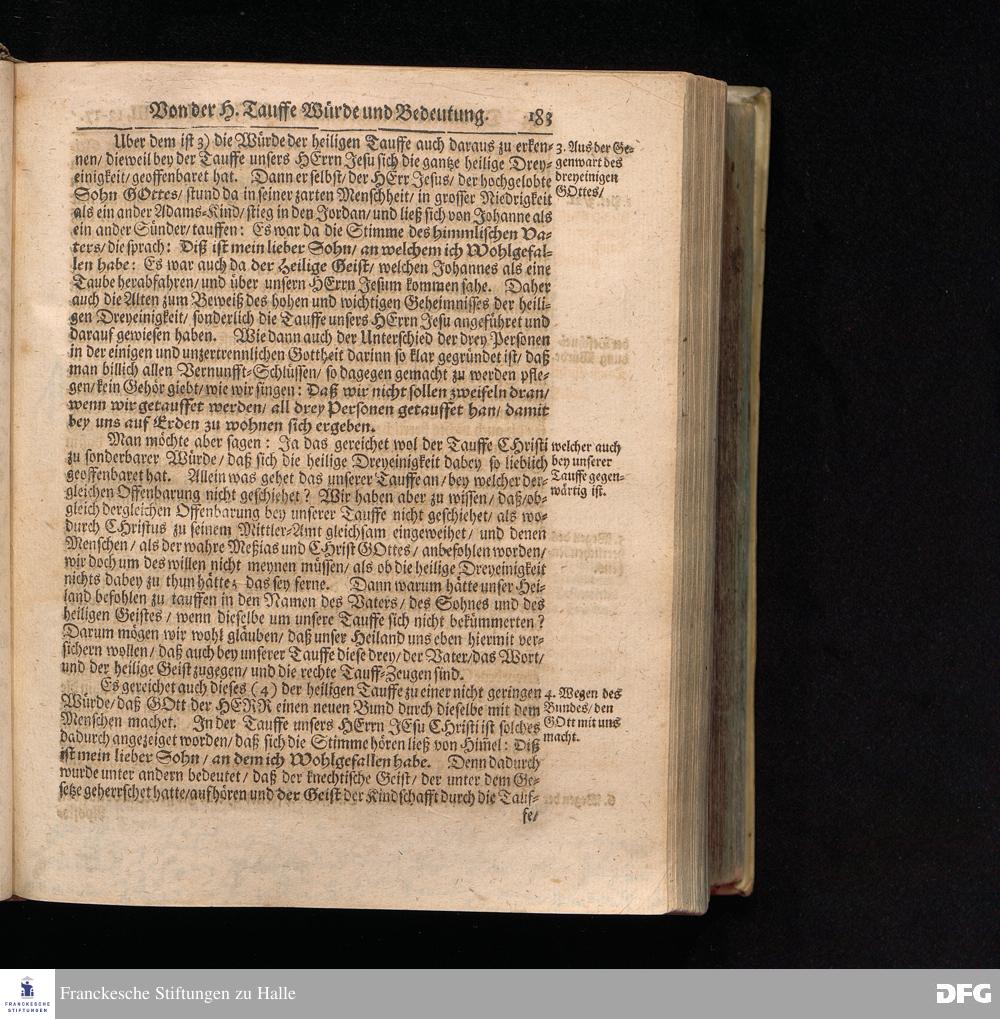 Von der H. Tauffe Würde und Bedeutung. 183
Uber dem ist 3) die Würde der heiligen Tauffe auch daraus zu erken-
nen/ dieweil bey der Tauffe unsers HErrn Jesu sich die gantze heilige Drey-
einigkeit/ geoffenbaret hat. Dann er selbst/ der HErr Jesus/ der hochgelobte
Sohn GOttes/ stund da in seiner zarten Menschheit/ in grosser Niedrigkeit
als ein ander Adams-Kind/ stieg in den Jordan/ und ließ sich von Johanne als
ein ander Sünder/ tauffen: Es war da die Stimme des himmlischen Va-
ters/ die sprach: Diß ist mein lieber Sohn/ an welchem ich Wohlgefal-
len habe: Es war auch da der Heilige Geist/ welchen Johannes als eine
Taube herabfahren/ und über unsern HErrn Jesum kommen sahe. Daher
auch die Alten zum Beweiß des hohen und wichtigen Geheimnisses der heili-
gen Dreyeinigkeit/ sonderlich die Tauffe unsers HErrn Jesu angeführet und
darauf gewiesen haben. Wie dann auch der Unterschied der drey Personen
in der einigen und unzertrennlichen Gottheit darinn so klar gegründet ist/ daß
man billich allen Vernunfft-Schlüssen/ so dagegen gemacht zu werden pfle-
gen/ kein Gehör giebt/ wie wir singen: Daß wir nicht sollen zweifeln dran/
wenn wir getauffet werden/ all drey Personen getauffet han/ damit
bey uns auf Erden zu wohnen sich ergeben.
3. Aus der Ge-
genwart des
dreyeinigen
GOttes/
Man möchte aber sagen: Ja das gereichet wol der Tauffe CHristi
zu sonderbarer Würde/ daß sich die heilige Dreyeinigkeit dabey so lieblich
geoffenbaret hat. Allein was gehet das unserer Tauffe an/ bey welcher der-
gleichen Offenbarung nicht geschiehet? Wir haben aber zu wissen/ daß/ ob-
gleich dergleichen Offenbarung bey unserer Tauffe nicht geschiehet/ als wo-
durch CHristus zu seinem Mittler-Amt gleichsam eingeweihet/ und denen
Menschen/ als der wahre Meßias und CHrist GOttes/ anbefohlen worden/
wir doch um des willen nicht meynen müssen/ als ob die heilige Dreyeinigkeit
nichts dabey zu thun hätte; das sey ferne. Dann warum hätte unser Hei-
land befohlen zu tauffen in den Namen des Vaters/ des Sohnes und des
heiligen Geistes/ wenn dieselbe um unsere Tauffe sich nicht bekümmerten?
Darum mögen wir wohl gläuben/ daß unser Heiland uns eben hiermit ver-
sichern wollen/ daß auch bey unserer Tauffe diese drey/ der Vater/ das Wort/
und der heilige Geist zugegen/ und die rechte Tauff-Zeugen sind.
welcher auch
bey unserer
Tauffe gegen-
wärtig ist.
Es gereichet auch dieses (4) der heiligen Tauffe zu einer nicht geringen
Würde/ daß GOtt der HERR einen neuen Bund durch dieselbe mit dem
Menschen machet. In der Tauffe unsers HErrn JEsu CHristi ist solches
dadurch angezeiget worden/ daß sich die Stimme hören ließ von Him̃el: Diß
ist mein lieber Sohn/ an dem ich Wohlgefallen habe. Denn dadurch
wurde unter andern bedeutet/ daß der knechtische Geist/ der unter dem Ge-
setze geherrschet hatte/ aufhören und der Geist der Kindschafft durch die Tauf-
fe/
4. Wegen des
Bundes/ den
GOtt mit uns
macht.
FRANCKESCHE
STIFTUNGEN
Franckesche Stiftungen zu Halle
DFG